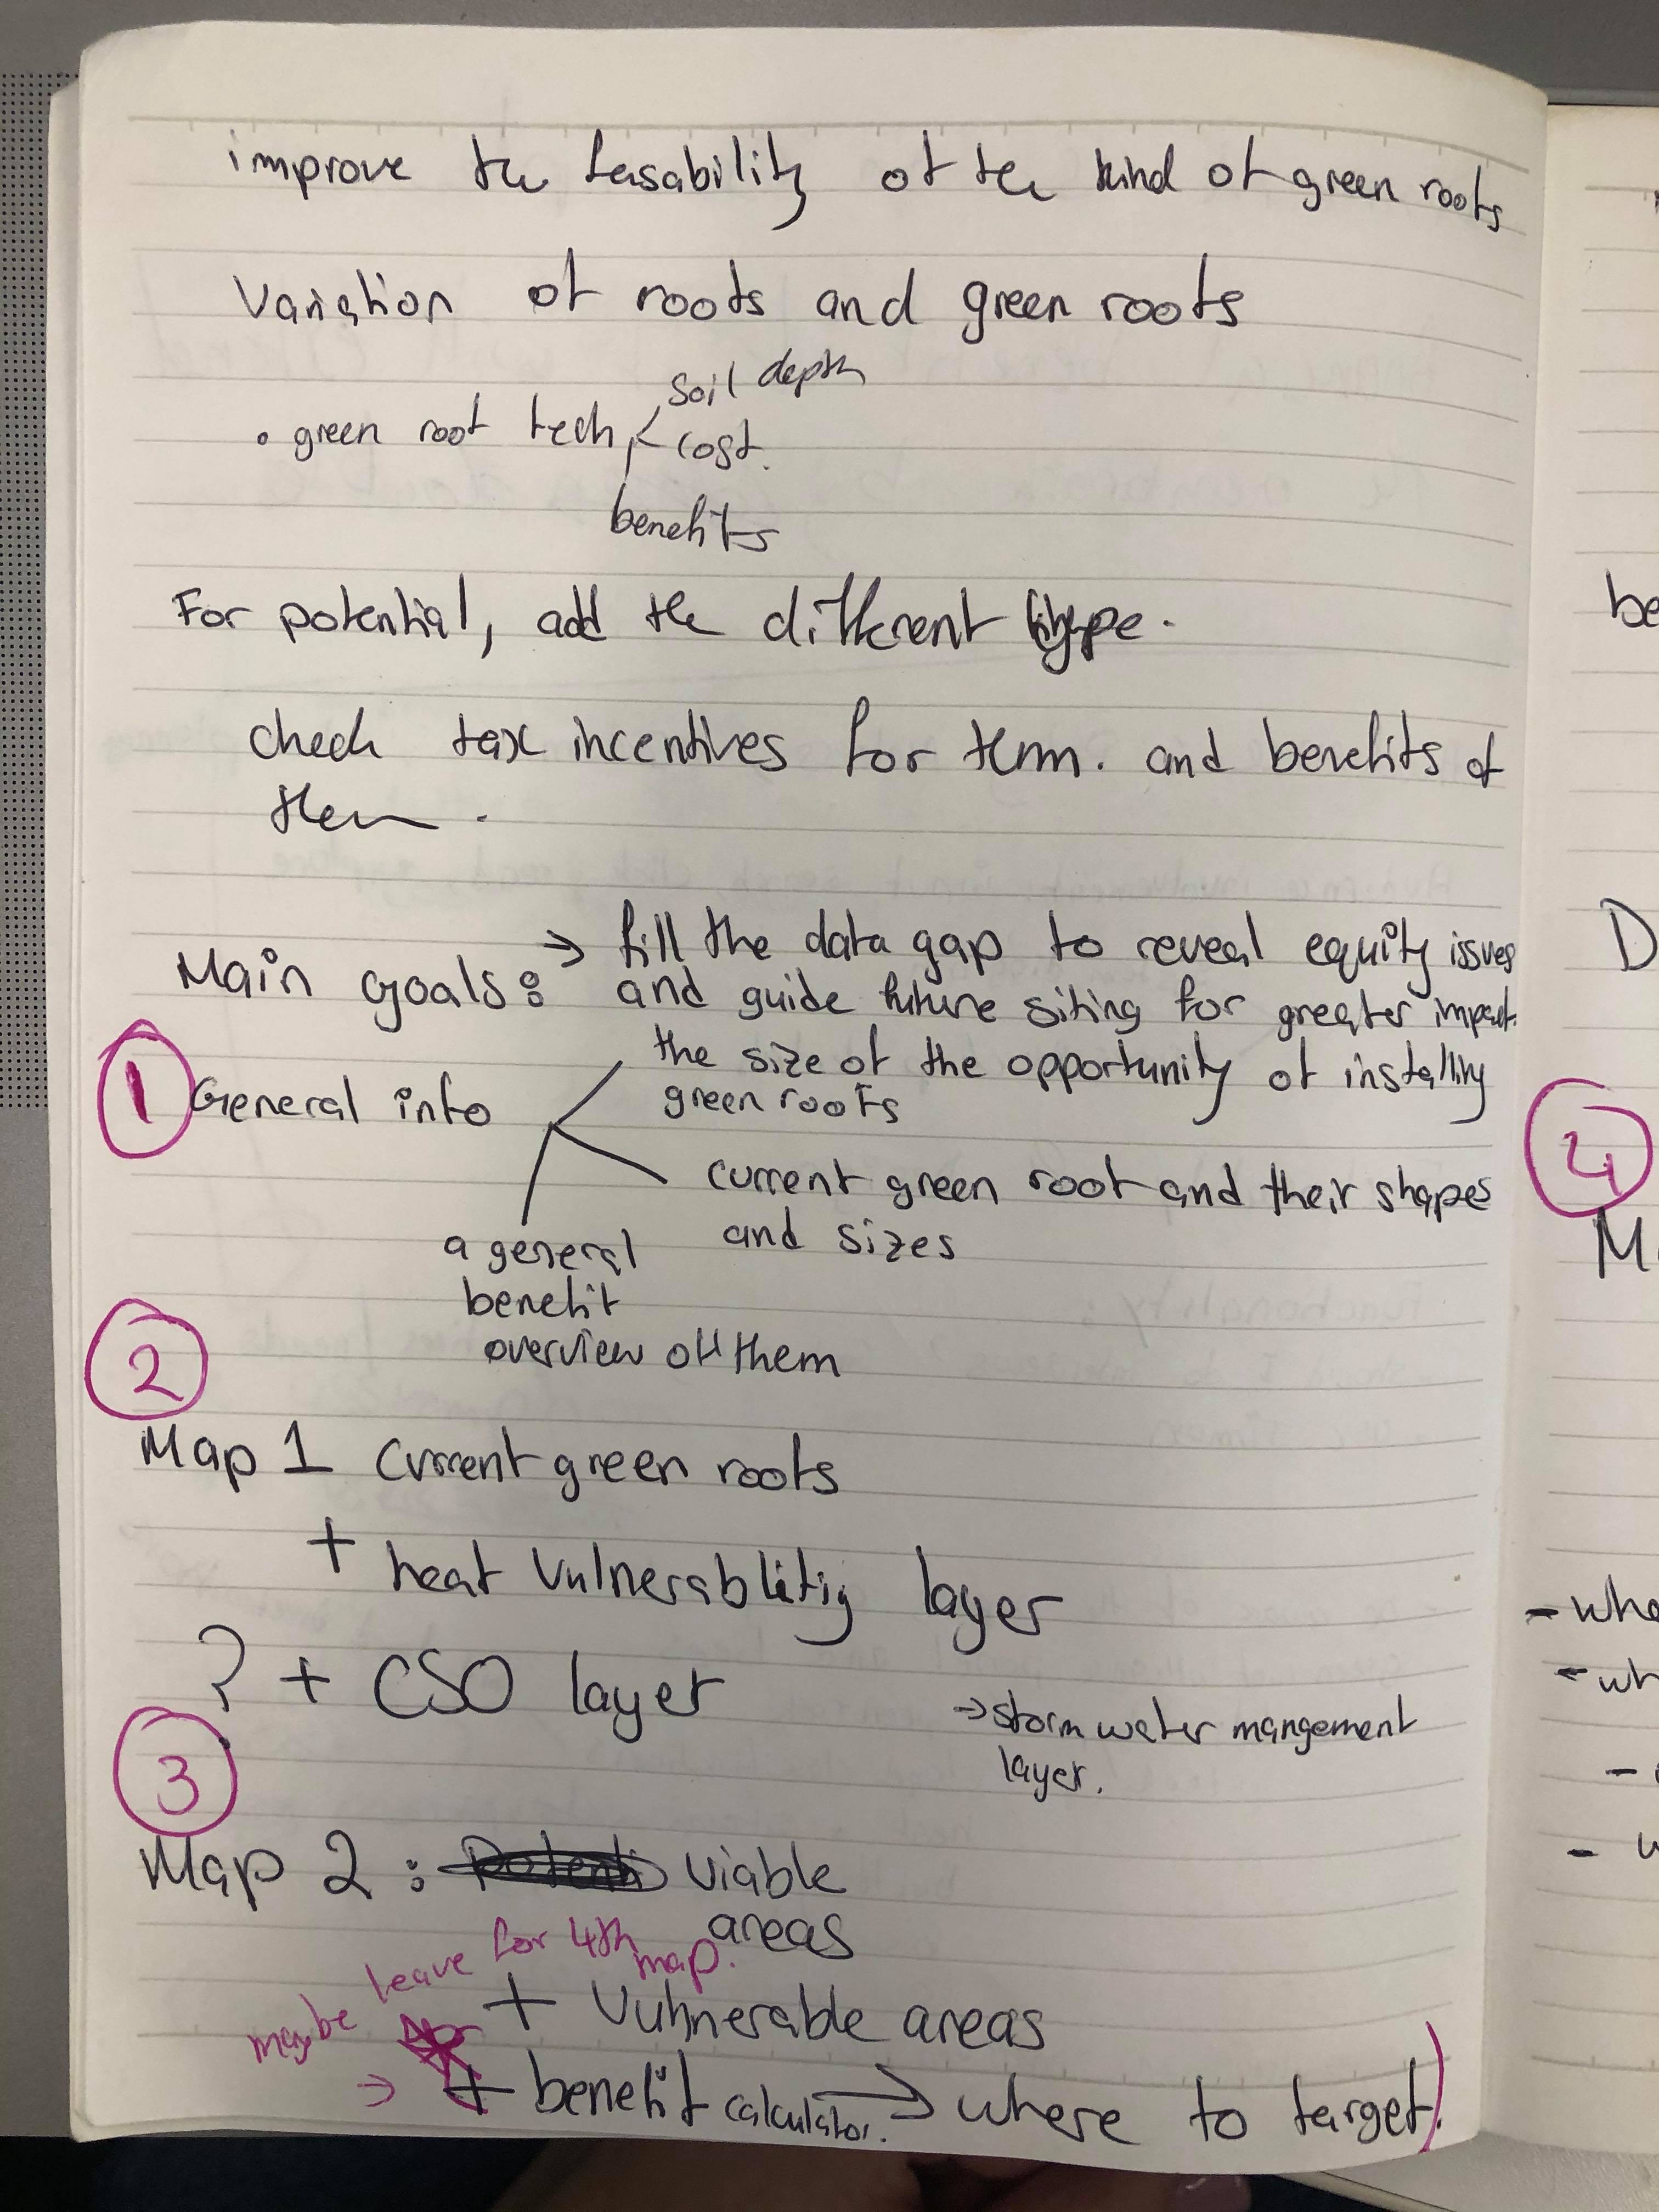 improve the feasability of the kind of green roofs
Variation of roofs and green roofs
soil depth
• green roof tech
cost.
benefits
For potential, add the different type.
check tax incentives for them. and benefits of
them.
Main goals: → fill the data gap to reveal equity issues
and guide future siting for greater impact.
1 General info
the size of the opportunity of installing
green roofs
current green roof and their shapes
and sizes
a general
benefit
overview off them
2
Map 1 Current green roofs
+ heat vulnerablitiy layer
? + CSO layer
→ storm water mangement
layer.
3
Map 2 : viable
areas
maybe leave for 4th map.
+ Vulnerable areas
→ + benefit calculator. → where to target)
be
D
4
M